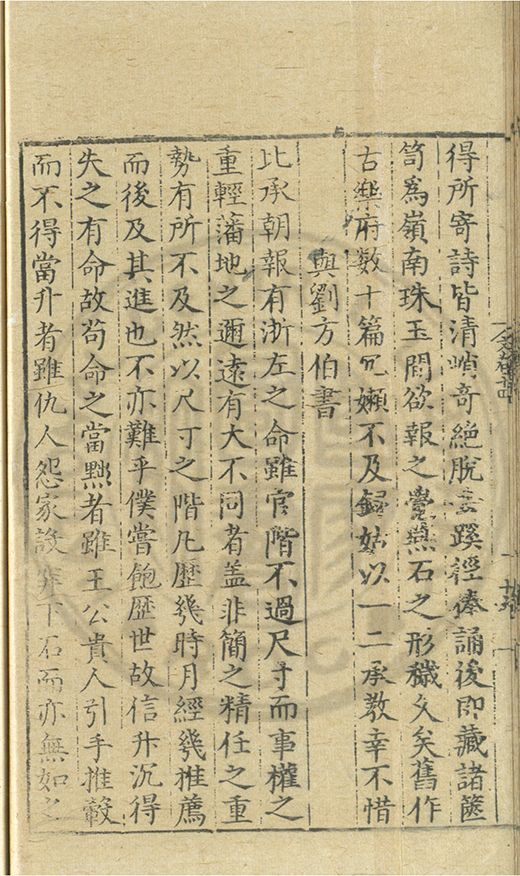 得所寄詩皆清峭奇絶脫去蹊徑捧誦後即藏諸篋
笥為嶺南珠玉間欲報之覺燕石之形穢久矣舊作
古樂府数十篇冗嬾不及録姑以一二承教幸不惜
與劉方伯書
比承朝報有浙左之命雖官階不過尺寸而事權之
重輕藩地之邇遠有大不同者盖非簡之精任之重
勢有所不及然以尺寸之階凡歴幾時月經幾推薦
而後及其進也不亦難乎僕嘗飽歴世故信升沉得
失之有命故苟命之當黜者雖王公貴人引手推轂
而不得當升者雖仇人怨家設穽下石而亦無如之